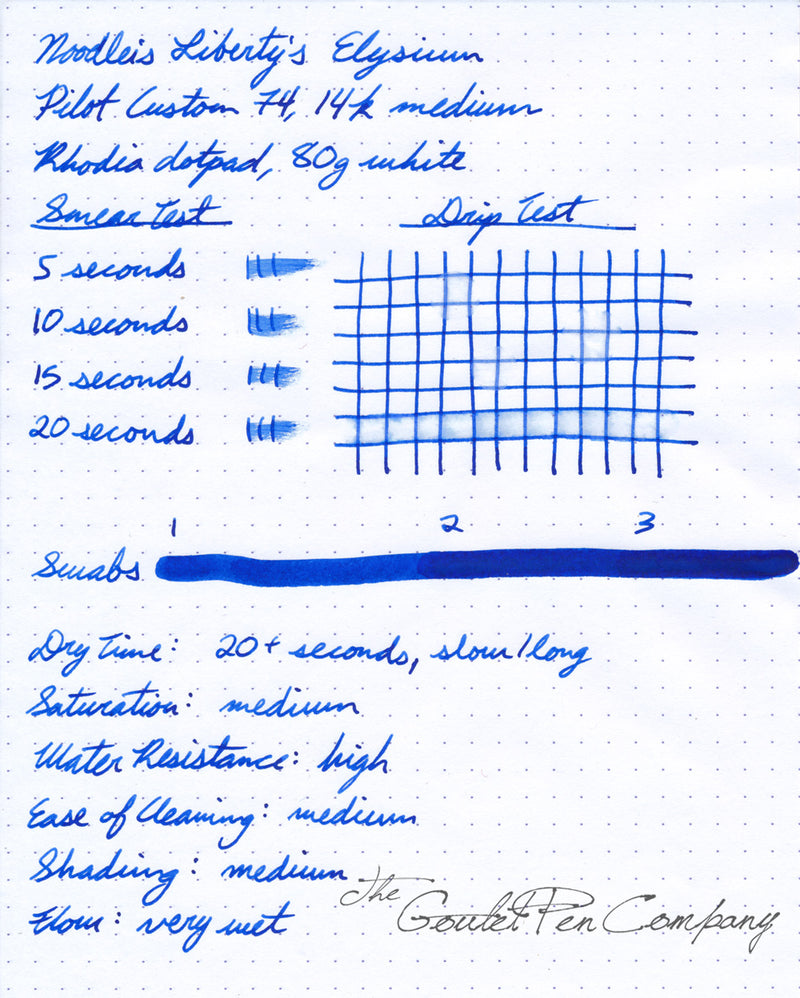 Noodler's Liberty's Elysium
Pilot Custom 74, 14k medium
Rhodia dotpad, 80g white
Smear Test
Drip Test
5 seconds
10 seconds
15 seconds
20 seconds
1 2 3
Swabs
Dry Time: 20+ seconds, slow/long
Saturation: medium
Water Resistance: high
Ease of Cleaning: medium
Shading: medium
Flow: very wet
The Goulet Pen Company